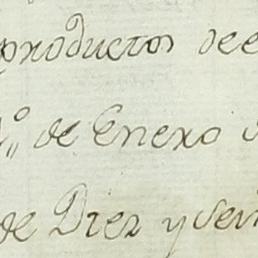 productos de e
1.º de Enero d
de Diez y sei